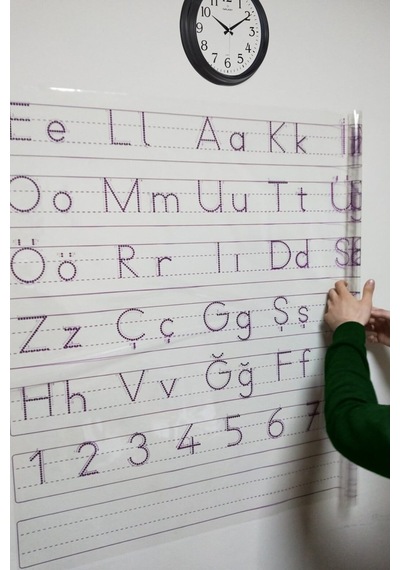 12 1 2 3 4 5 6 7 8 9 10
Ee Ll Aa Kk
Oo Mm Uu Tt Ü
Öö Rr Iı Dd S
Zz Çç Gg Şş
Hh Vv Ğğ Ff
1 2 3 4 5 6 7